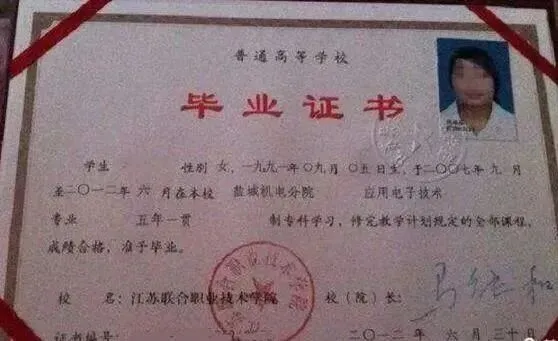 普通高等学校
毕业证书
学生 性别 女，一九九一年〇九月〇五日生，于二〇〇七年九月
至二〇一二年六月在本校 盐城机电分院 应用电子技术
专业 五年一贯 制专科学习，修完教学计划规定的全部课程，
成绩合格，准予毕业。
校 名：江苏联合职业技术学院 校（院）长：
证书编号： 二〇一二年 六月三十日